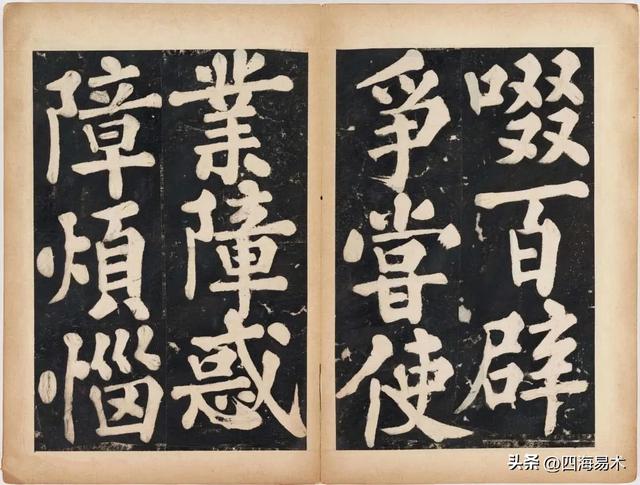 啜百辟
爭嘗使
業障惑
障煩惱
头条 @四海易木